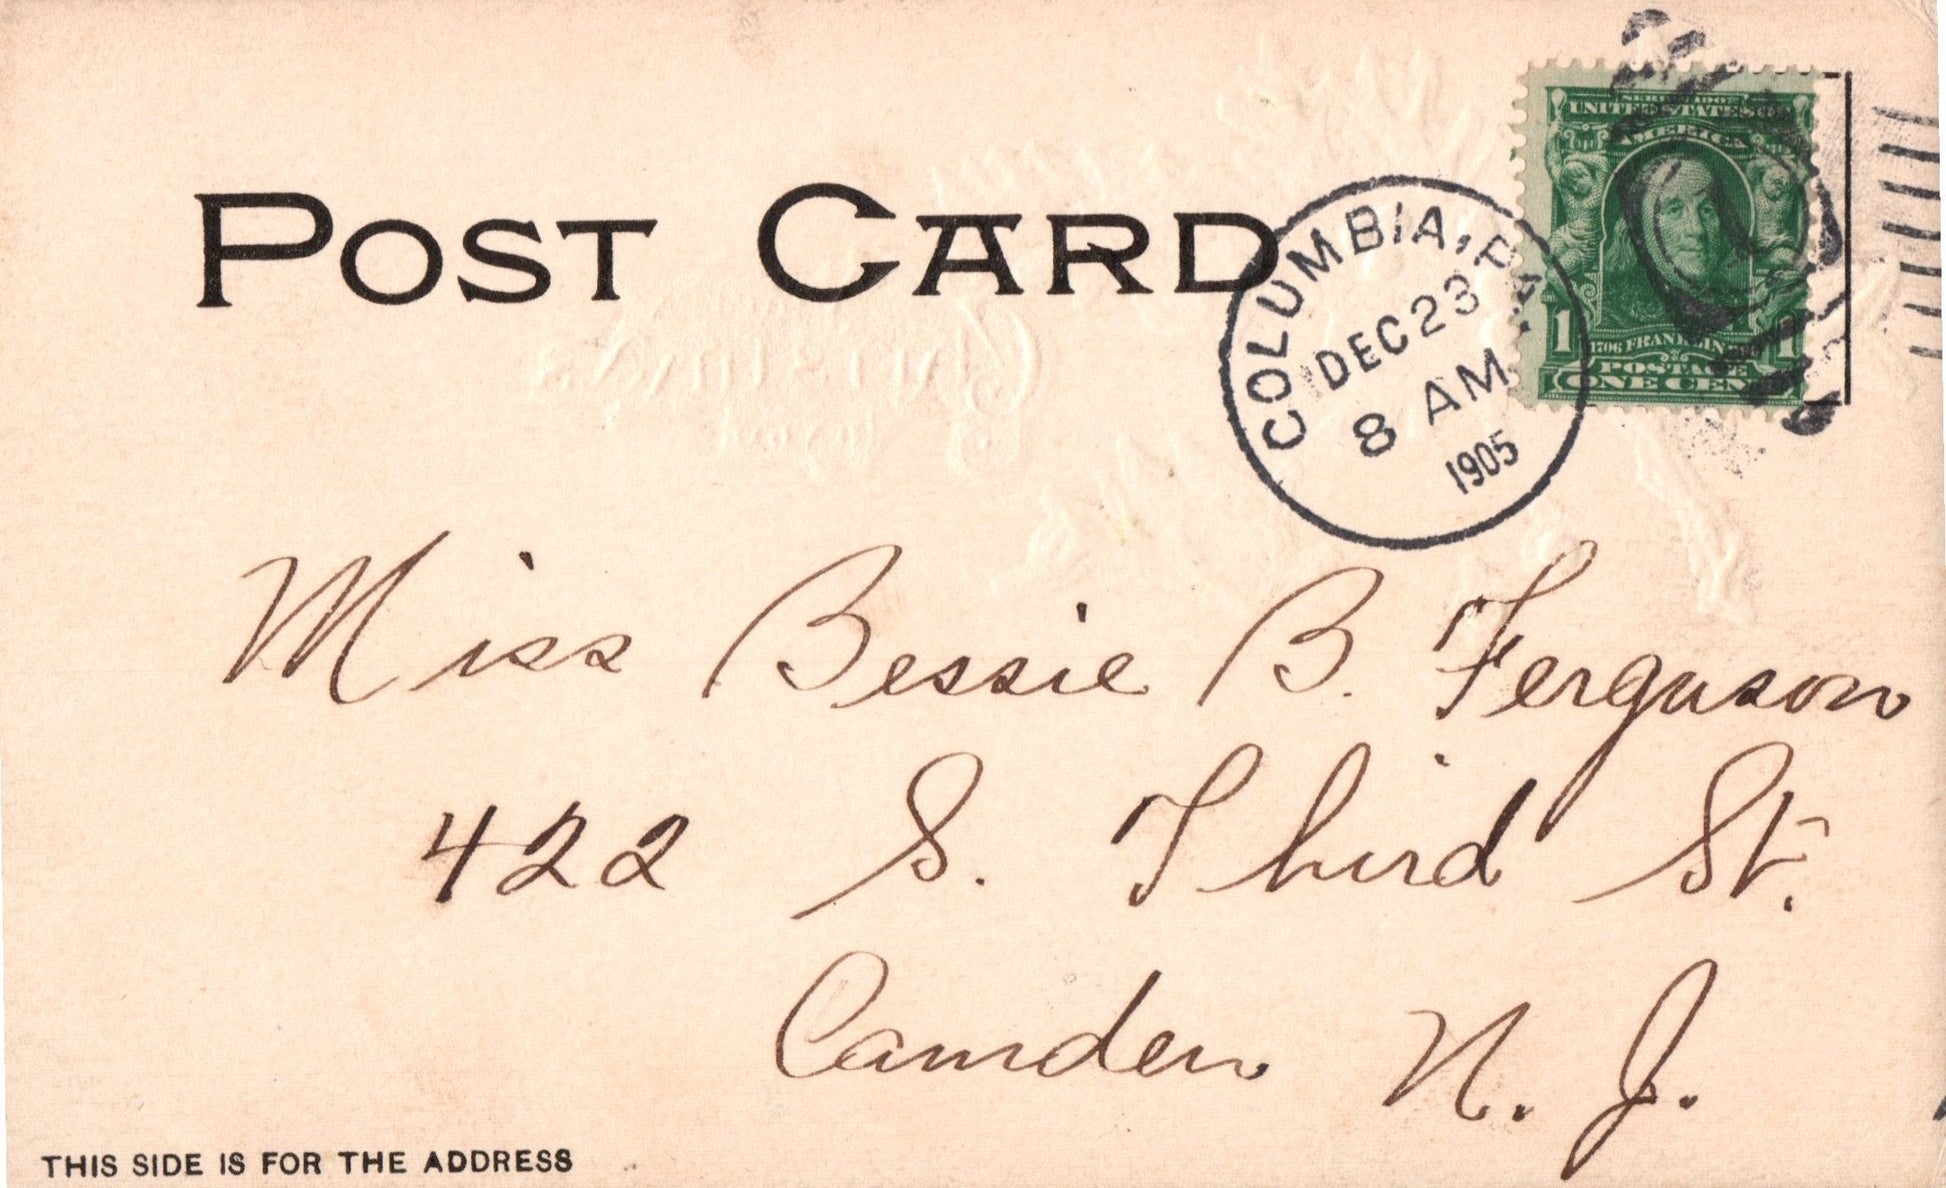 POST CARD
COLUMBIA, PA.
DEC 23
8 AM
1905
SERIES 1902
UNITED STATES OF
AMERICA
1706 FRANKLIN
POSTAGE
1 ONE CENT 1
Miss Bessie B. Ferguson
422 S. Third St.
Camden N. J.
THIS SIDE IS FOR THE ADDRESS